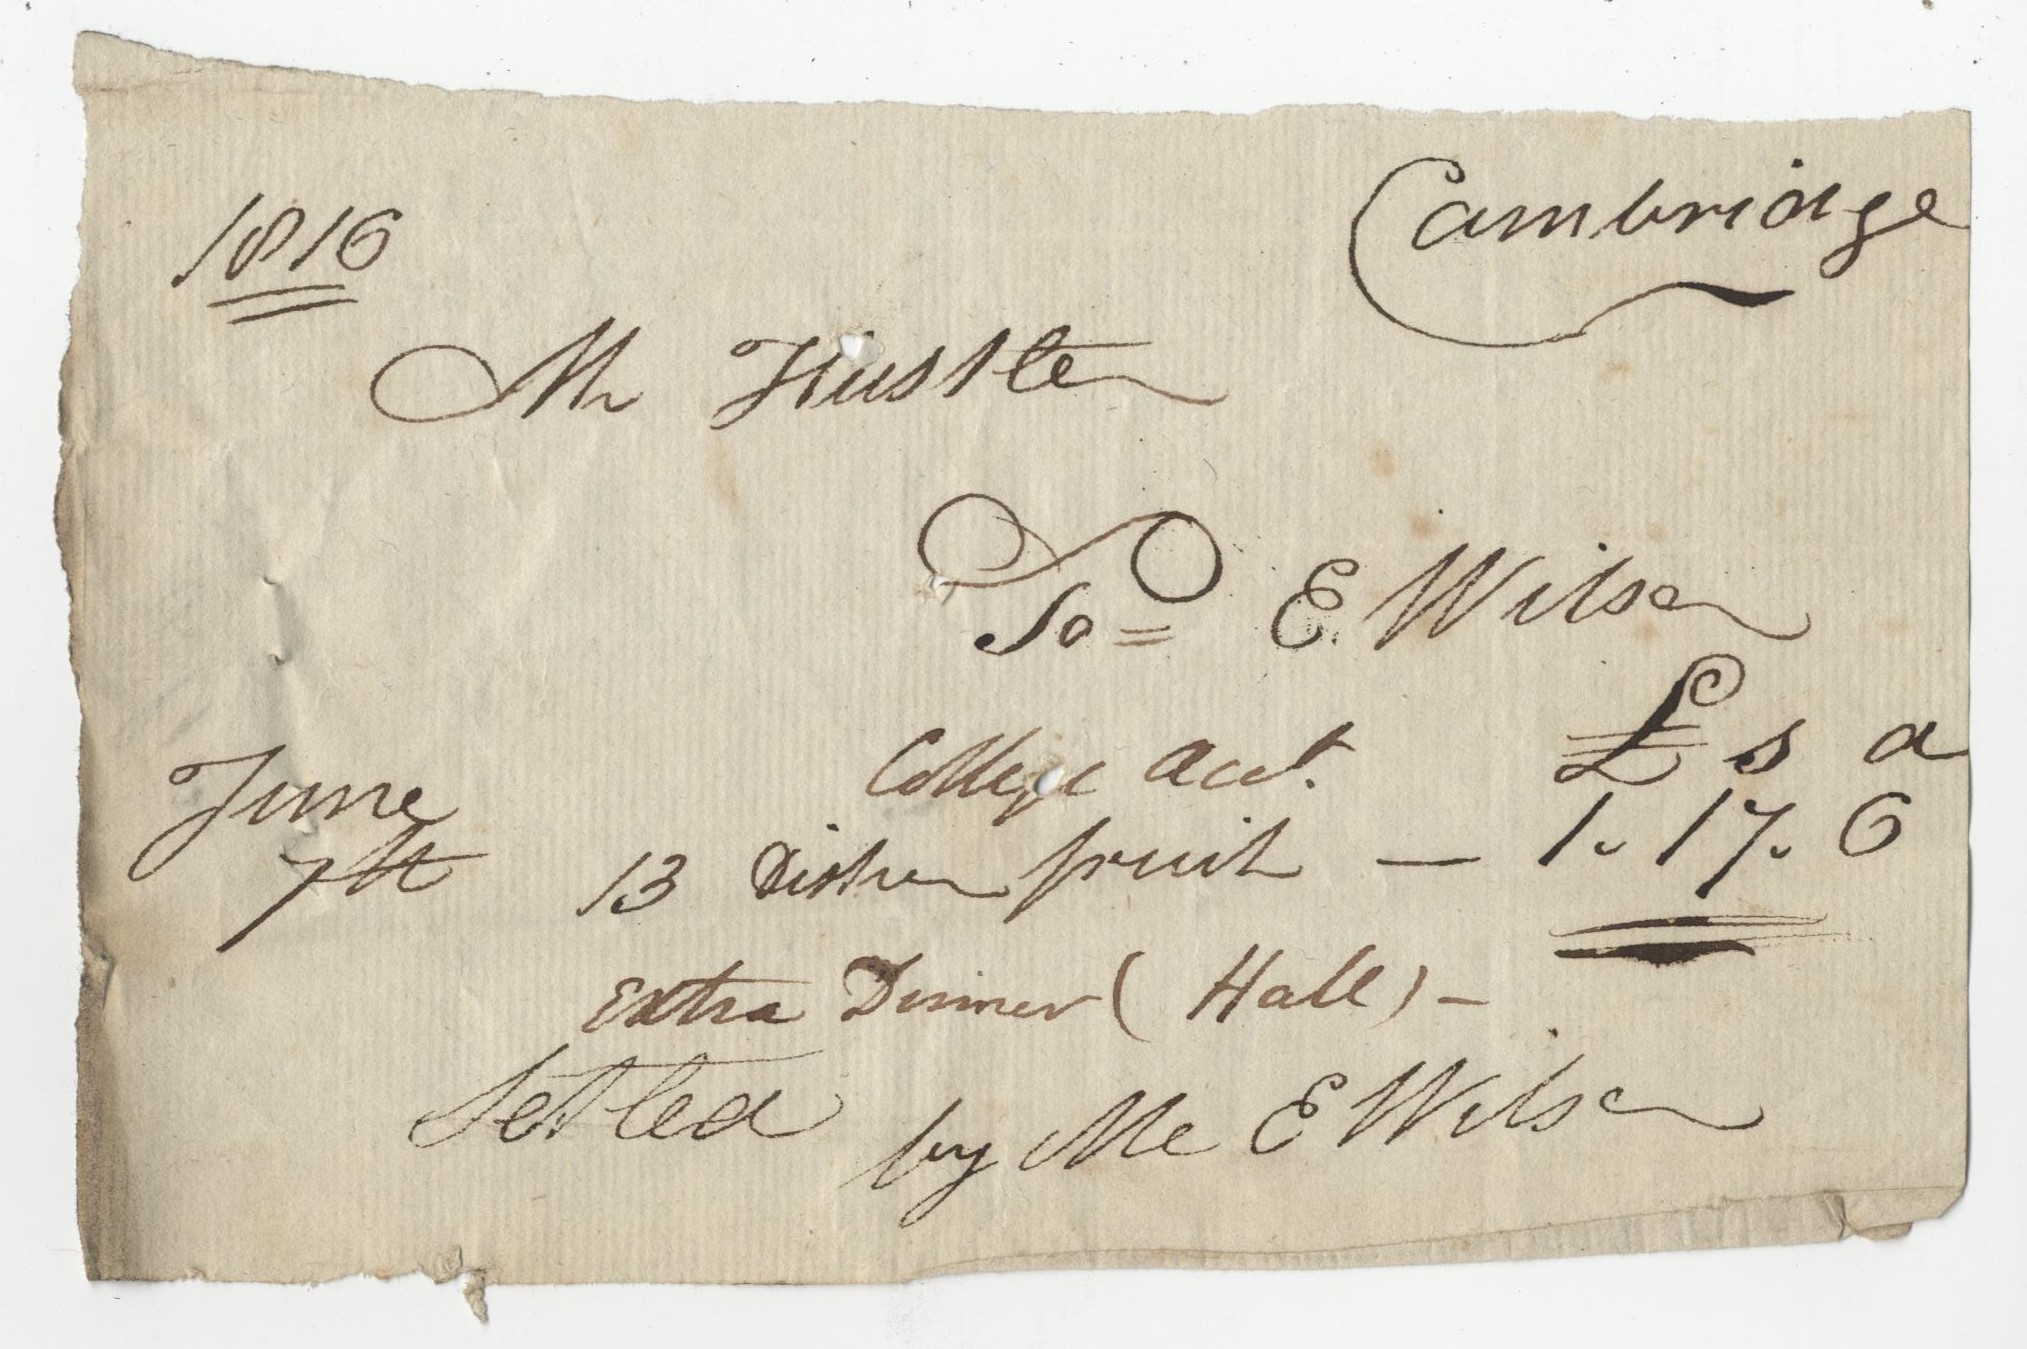 1816
Cambridge
Mr Hustler
To = E Wilson
College Acct. £ s d
June
7th 13 Dishes fruit — 1. 17. 6
Extra Dinner ( Hall ) –
Settled by Me E Wilson